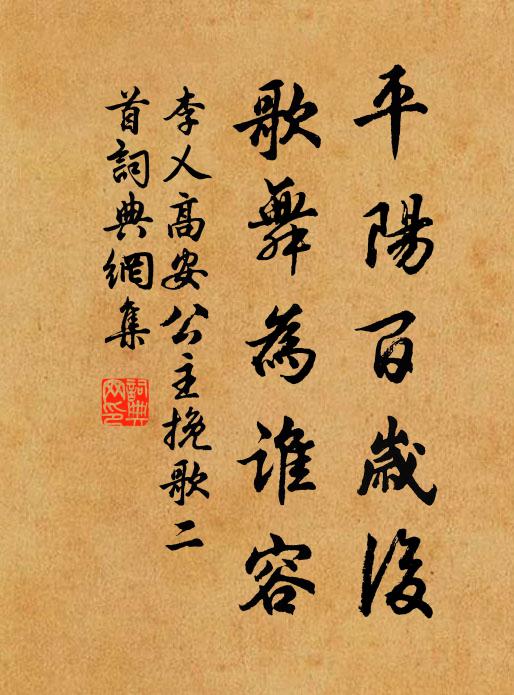 平陽百歲後
歌舞為誰容
李乂高安公主挽歌二
首詞典網集